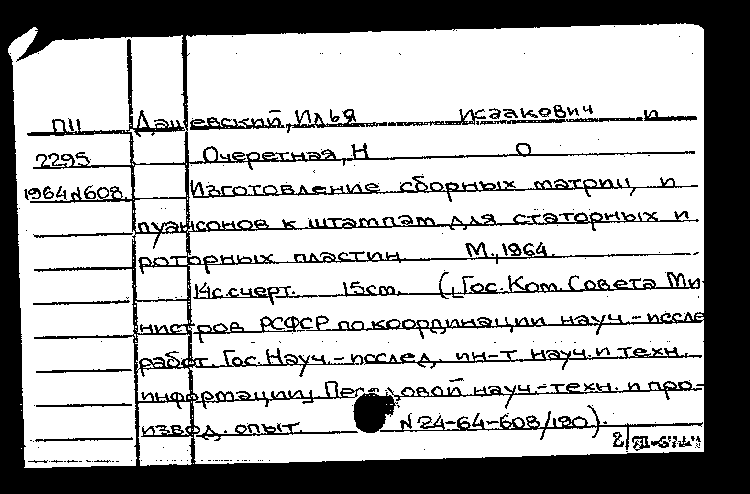 П11 Дашевский, Илья Исаакович и
2295 Очеретная, Н О
1964 N608. Изготовление сборных матриц и
пуансонов к штампам для статорных и
роторных пластин. М., 1964.
14с. с черт. 15см. (Гос. Ком. Совета Ми-
нистров РСФСР по координации науч.-иссле
работ. Гос. Науч.-исслед. ин-т науч. и техн.
информации. Передовой науч.-техн. и про-
извод. опыт. N 24-64-608/190).